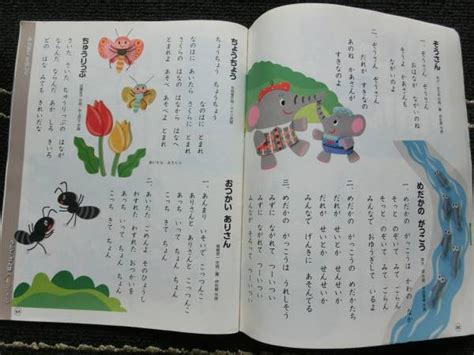 ぞうさん
一、ぞうさん ぞうさん
おはなが ながいのね
そうよ かあさんも
ながいのよ
二、ぞうさん ぞうさん
だれが すきなの
あのね かあさんが
すきなのよ
めだかの がっこう
一、めだかの がっこうは かわのなか
そっと のぞいて みてごらん
そっと のぞいて みてごらん
みんなで おゆうぎ しているよ
二、めだかの がっこうの めだかたち
だれが せいとか せんせいか
だれが せいとか せんせいか
みんなで げんきに あそんでる
三、めだかの がっこうは うれしそう
みずに ながれて つーいつーい
みずに ながれて つーいつーい
みんなが そろって つーいつーい
ちょうちょう
ちょうちょう ちょうちょう
なのはに とまれ
なのはに あいたら
さくらに とまれ
さくらの はなの
はなから はなへ
とまれよ あそべ
あそべよ とまれ
ちゅうりっぷ
さいた さいた
ちゅうりっぷの はなが
ならんだ ならんだ
あか しろ きいろ
どの はな みても
きれいだな
おつかい ありさん
一、あんまり いそいで こっつんこ
ありさんと ありさんと こっつんこ
あっち いって ちょん ちょん
こっち きて ちょん
二、あいたた ごめんよ そのひょうし
わすれた わすれた おつかいを
あっち いって ちょん ちょん
こっち きて ちょん